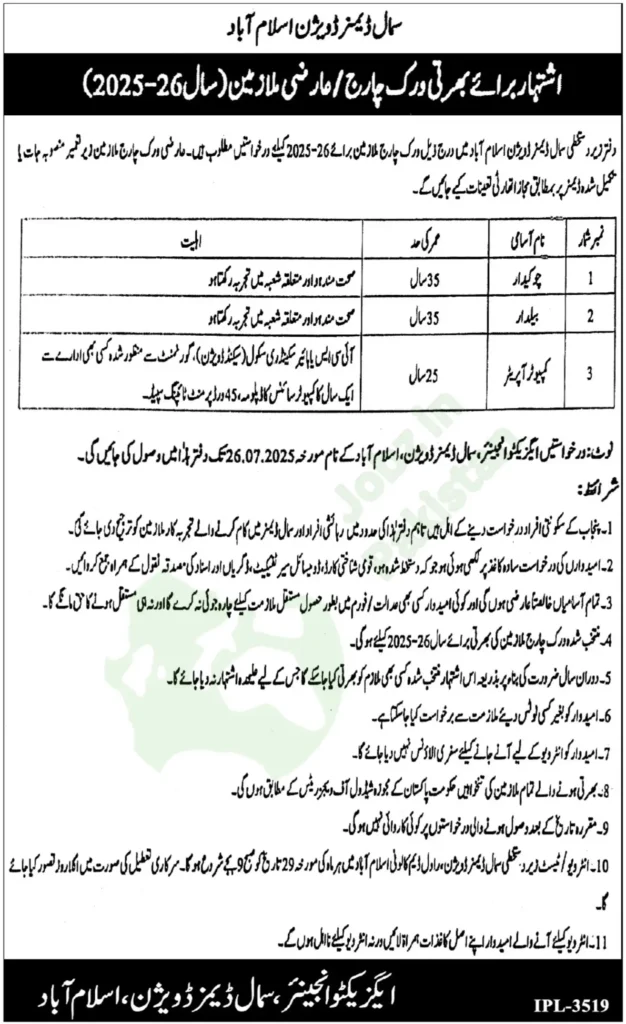 سمال ڈیمز ڈویژن اسلام آباد
اشتہار برائے بھرتی ورک چارج/عارضی ملازمین (سال 26-2025)
دفتر زیر دستخطی سمال ڈیمز ڈویژن اسلام آباد میں درج ذیل ورک چارج ملازمین برائے 26-2025 کیلئے درخواستیں مطلوب ہیں۔ عارضی ورک چارج ملازمین زیر تعمیر منصوبہ جات یا
تکمیل شدہ ڈیمز پر بمطابق مجاز اتھارٹی تعینات کیے جائیں گے۔
نمبر شمار نام آسامی عمر کی حد اہلیت
1 چوکیدار 35 سال صحت مند ہو اور متعلقہ شعبہ میں تجربہ رکھتا ہو
2 بیلدار 35 سال صحت مند ہو اور متعلقہ شعبہ میں تجربہ رکھتا ہو
3 کمپیوٹر آپریٹر 25 سال آئی سی ایس یا ہائیر سکینڈری سکول (سیکنڈ ڈویژن)، گورنمنٹ سے منظور شدہ کسی بھی ادارے سے
ایک سال کا کمپیوٹر سائنس کا ڈپلومہ، 45 ورڈ پر منٹ ٹائپنگ سپیڈ۔
نوٹ: درخواستیں ایگزیکٹو انجینئر، سمال ڈیمز ڈویژن، اسلام آباد کے نام مورخہ 26.07.2025 تک دفتر ہذا میں وصول کی جائیں گی۔
شرائط:
1- پنجاب کے سکونتی افراد درخواست دینے کے اہل ہیں تاہم دفتر ہذا کی حدود میں رہائشی افراد اور سمال ڈیمز میں کام کرنے والے تجربہ کار ملازمین کو ترجیح دی جائے گی۔
2- امیدواران کی درخواست سادہ کاغذ پر لکھی ہوئی ہو جو کہ دستخط شدہ ہو، قومی شناختی کارڈ، ڈومیسائل سرٹیفکیٹ، ڈگریاں اور اسناد کی مصدقہ نقول کے ہمراہ جمع کروائیں۔
3- تمام آسامیاں خالصتاً عارضی ہوں گی اور کوئی امیدوار کسی بھی عدالت/فورم میں بطور حصول مستقل ملازمت کیلئے چارہ جوئی نہ کرے گا اور نہ ہی مستقل ہونے کا حق مانگے گا۔
4- منتخب شدہ ورک چارج ملازمین کی بھرتی برائے سال 26-2025 کیلئے ہوگی۔
5- دوران سال ضرورت کی بناء پر بذریعہ اس اشتہار منتخب شدہ کسی بھی ملازم کو بھرتی کیا جا سکے گا جس کے لیے علیحدہ اشتہار نہ دیا جائے گا۔
6- امیدوار کو بغیر کسی نوٹس دیئے ملازمت سے برخواست کیا جا سکتا ہے۔
7- امیدوار کو انٹرویو کے لیے آنے جانے کیلئے سفری الاؤنس نہیں دیا جائے گا۔
8- بھرتی ہونے والے تمام ملازمین کی تنخواہیں حکومت پاکستان کے مجوزہ شیڈول آف ویجز ریٹس کے مطابق ہوں گی۔
9- مقررہ تاریخ کے بعد وصول ہونے والی درخواستوں پر کوئی کاروائی نہیں ہوگی۔
10- انٹرویو/ٹیسٹ زیر دستخطی سمال ڈیمز ڈویژن، راول ڈیم کالونی اسلام آباد میں ہر ماہ کی مورخہ 29 تاریخ کو صبح 9 بجے شروع ہوگا۔ سرکاری تعطیل کی صورت میں اگلا روز تصور کیا جائے
گا۔
11- انٹرویو کیلئے آنے والے امیدوار اپنے اصل کاغذات ہمراہ لائیں ورنہ انٹرویو کیلئے نااہل ہوں گے۔
ایگزیکٹو انجینئر، سمال ڈیمز ڈویژن، اسلام آباد
IPL-3519
Jobz in
Pakistan